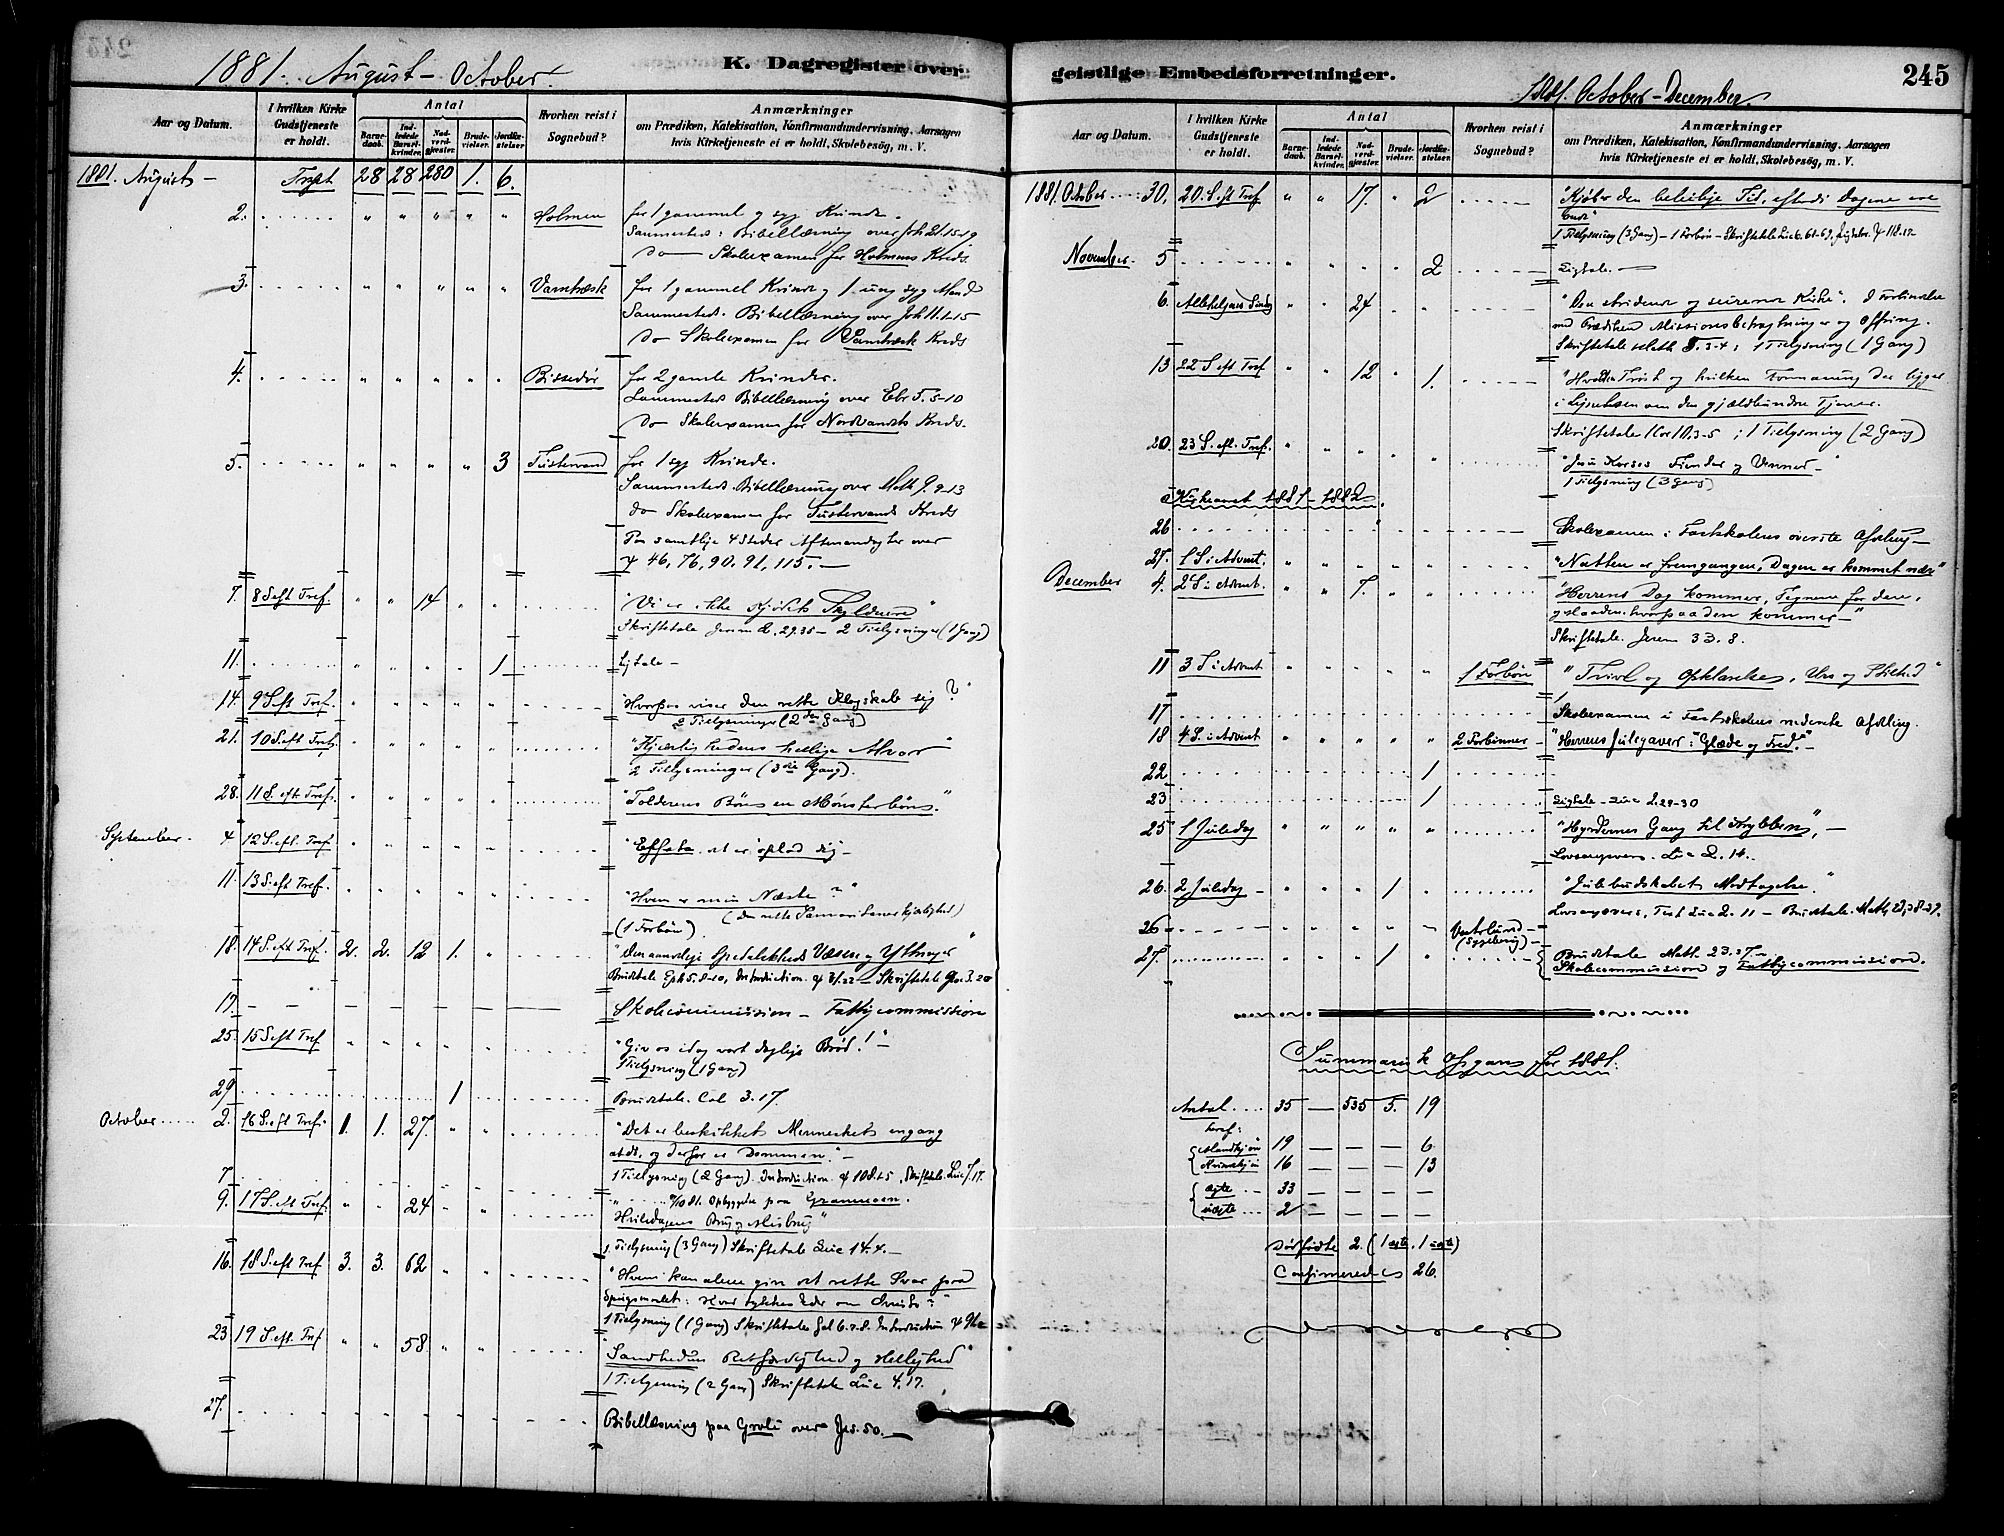 1881. August - October.
K. Dagregister over
Aar og Datum.
I hvilken Kirke Gudstjeneste er holdt.
Antal
Barne- daab.
Ind- ledede Barsel- kvinder.
Nad- verd- gjester.
Brude- vielser.
Jordfæ- stelser
Hvorhen reist i Sognebud?
Anmærkninger
om Prædiken, Katekisation, Konfirmandundervisning, Aarsagen
hvis Kirketjeneste ei er holdt, Skolebesøg, m. V.
1881. August - Trspt 28 28 280 1. 6.
2. " " " " " Holmen for 1 gammel og syg Kvinde.
Sammesteds: Bibellæsning over Joh 21.15-19
Do Skoleexamen for Holmens Kreds
3. " " " " " Varntræsk for 1 gammel Kvinde og 1 ung syg Mand
Sammesteds. Bibellæsning over Joh 11.1-15
Do Skoleexamen for Kreds
4. " " " " " for 2 gamle Kvinder.
Sammesteds Bibellæsning over Ebr 5.5-10
Do Skoleexamen for Nordvandets Kreds.
5. " " " " 3 Tustervand for 1 syg Kvinde.
Sammesteds Bibellæsning over Math 9. 9-13
do Skoleexamen for Tustervands Kreds
Paa samtlige 4 Steder Aftenandagter over
ψ 46, 76, 90. 91, 115. -
7. 8 S eft Tref. " " 14 " " "Vi er ikke Kjødets Skyldnere"
Skriftetale 29.35 - 2 Tielysninger (1 Gang)
11. " " " " 1 Ligtale -
14. 9 S. eft Tref. " " " " " "Hvorpaa viser den rette Klogskab sig?"
2 Tielysninger (2den Gang)
21. 10 S. eft Tref. " " " " " "Kjærlighedens hellige Alvor"
2 Tielysninger (3die Gang).
28. 11 S. eft. Tref. " " " " " "Tolderens Bøn en Mønsterbøn."
September. 4 12 S. eft. Tref " " " " " "Effata, det er oplad dig -
11. 13 S. eft Tref. " " " " " "Hvem er min Næste?"
(den rette Samaritaner kjærlighed)
(1 Forbøn)
18. 14 S. eft Tref. 2. 2. 12 1. " "Den aandelige Spedalskheds Væsen og Yttringer"
Brudetale Eph 5. 8-10, Introduction. - Skriftetale 3.20
17. - - - - - - Skolecommission - Fattigcommission
25. 15 S eft Tref " " " " " "Giv os idag vort daglige Brød!" -
1 Tielysning (1 Gang)
29 1 Brudetale. Col 3.17.
October 2. 16 S. eft Tref. 1. 1. 27. " " "Det er beskikket Mennesket engang
at dø, og derfor er Dommen." -
1 Tielysning (2 Gang). Introduction. Skriftetale. Luc 7. 17.
7 Opbyggelse paa Granmoen.
9. 17 S. eft Tref. " " 24 " " Hviledagens Brug og Misbrug"
1 Tielysning (3 Gang) Skriftetale Luc 14.4. -
16. 18 S. eft Tref 3. 3. 62 " " "Hvem kan alene give det rette Svar paa
Spørgsmaalet: Hvad tykkes Eder om Christo?"
1 Tielysning (1 Gang) Skriftetale Gal 6. 7.8. Introduction
23 19 S. eft. Tref " " 58 " " "Sandhedens Retfærdighed og Hellighed"
1 Tielysning (2 Gang) Skriftetale Luc 4.17.
27. Bibellæsning paa over Jes. 50. -
geistlige Embedsforretninger.
1881. October - December.
245
Aar og Datum.
I hvilken Kirke Gudstjeneste er holdt.
Antal
Barne- daab.
Ind- ledede Barsel- kvinder.
Nad- verd- gjester.
Brude- vielser.
Jordfæ- stelser.
Hvorhen reist i Sognebud?
Anmærkninger
om Prædiken, Katekisation, Konfirmandundervisning. Aarsagen
hvis Kirketjeneste ei er holdt, Skolebesøg, m. V.
1881. October 30. 20. S. eft Tref " " 17. " 2 "Kjøber den beleilige Tid, efterdi Dagene ere
onde"
1 Tielysning (3 Gang) - 1 Forbøn - Skriftetale 6. 67-69.
November. 5 " " " " 2 Ligtale. -
6. Allehelgens Søndag " " 24 " " "Den stridende og seirende Kirke". I Forbindelse
med Prædiken Missionsbetragtninger og Offring.
Skriftetale Math 5. 3-4; 1 Tielysning (1 Gang)
13 22 S eft Tref " " 12 " 1. "Hvilken Trøst og hvilken Formaning der ligger
i Lignelsen om den gjældbundne Tjener.
Skriftetale 1 Cor 10. 3-5; 1 Tielysning (2 Gang)
20. 23 S. eft. Tref. " " " " " "Jesu Korses Fiender og Venner -"
1 Tielysning (3 Gang)
Kirkeaaret 1881 - 1882.
26 Skoleexamen i Fastskolens øverste Afdeling -
27. 1 S i Advent. " " " " " "Natten er fremgangen, Dagen er kommet nær"
December 4. 2 S i Advent. " " 7. " " "Herrens Dag kommer, Tegnene for den,
og Maaden hvorpaa den kommer -"
Skriftetale. Jerem 33. 8.
11 3 S i Advent " " " " " 1 Forbøn "Tvivl og Opklarelse,
17 Skoleexamen i Fastskolens nederste Afdeling.
18 4 S. i Advent " " " " " 2 Forbønner - "Herrens Julegaver: "Glæde og Fred." -
22 1
23 1 Ligtale - Luc 2. 29-30
25 1 Juledag " " " " " "Hyrdernes Gang til Krybben", -
Lovsangsvers. Luc 2. 14.
26. 2 Juledag - " " " 1 " "Julebudskabets Modtagelse."
Lovsangsvers, Text Luc 2. 11 - Brudetale. Math
26 (Sygebesøg) -
27. 1 " Brudetale Math. 23. 37. -
Skolecommission og Fattigcommission.
Summarisk Opgave for 1881.
Antal 35 - 535 5. 19
heraf:
Mandkjøn 19 - - - 6.
Kvindekjøn 16 - - - 13
ægte 33 - - - -
uægte 2 - - - -
Dødfødte 2. (1 ægte, 1 uægte)
Confirmerede 26.